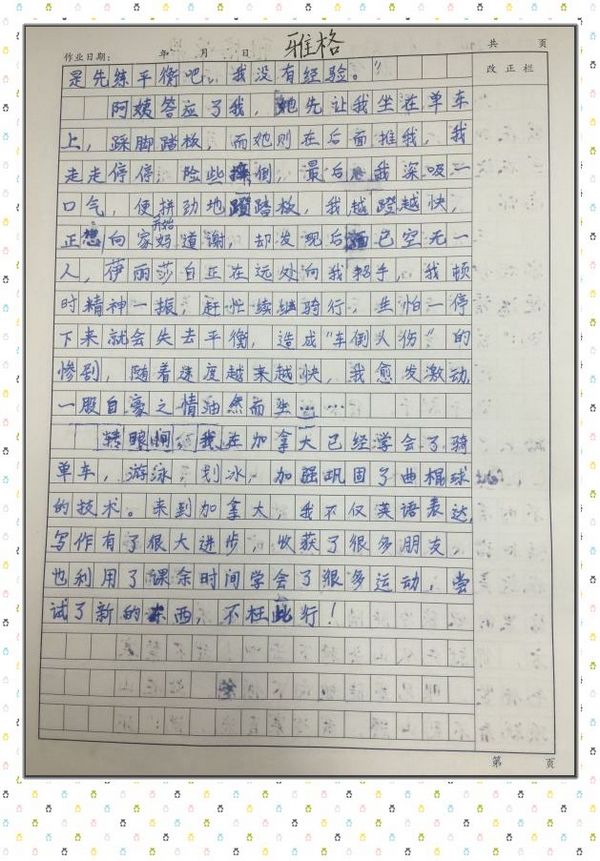 雅格
作业日期： 年 月 日 共 页
改正栏
是先练平衡吧，我没有经验。”
阿姨答应了我，她先让我坐在单车
上，踩脚踏板，而她则在后面推我，我
走走停停，险些摔倒，最后，我深吸一
口气，便拼劲地蹬踏板，我越蹬越快，
开始
正想向家妈道谢，却发现后面已空无一
人，伊丽莎白正在远处向我招手，我顿
时精神一振，赶忙续继骑行，生怕一停
下来就会失去平衡，造成“车倒人伤”的
惨剧，随着速度越来越快，我愈发激动，
一股自豪之情油然而生……
转眼间，我在加拿大已经学会了骑
单车，游泳，划冰，加强巩固了曲棍球
的技术。来到加拿大，我不仅英语表达，
写作有了很大进步，收获了很多朋友，
也利用了课余时间学会了很多运动，尝
试了新的东西，不枉此行！
第 页